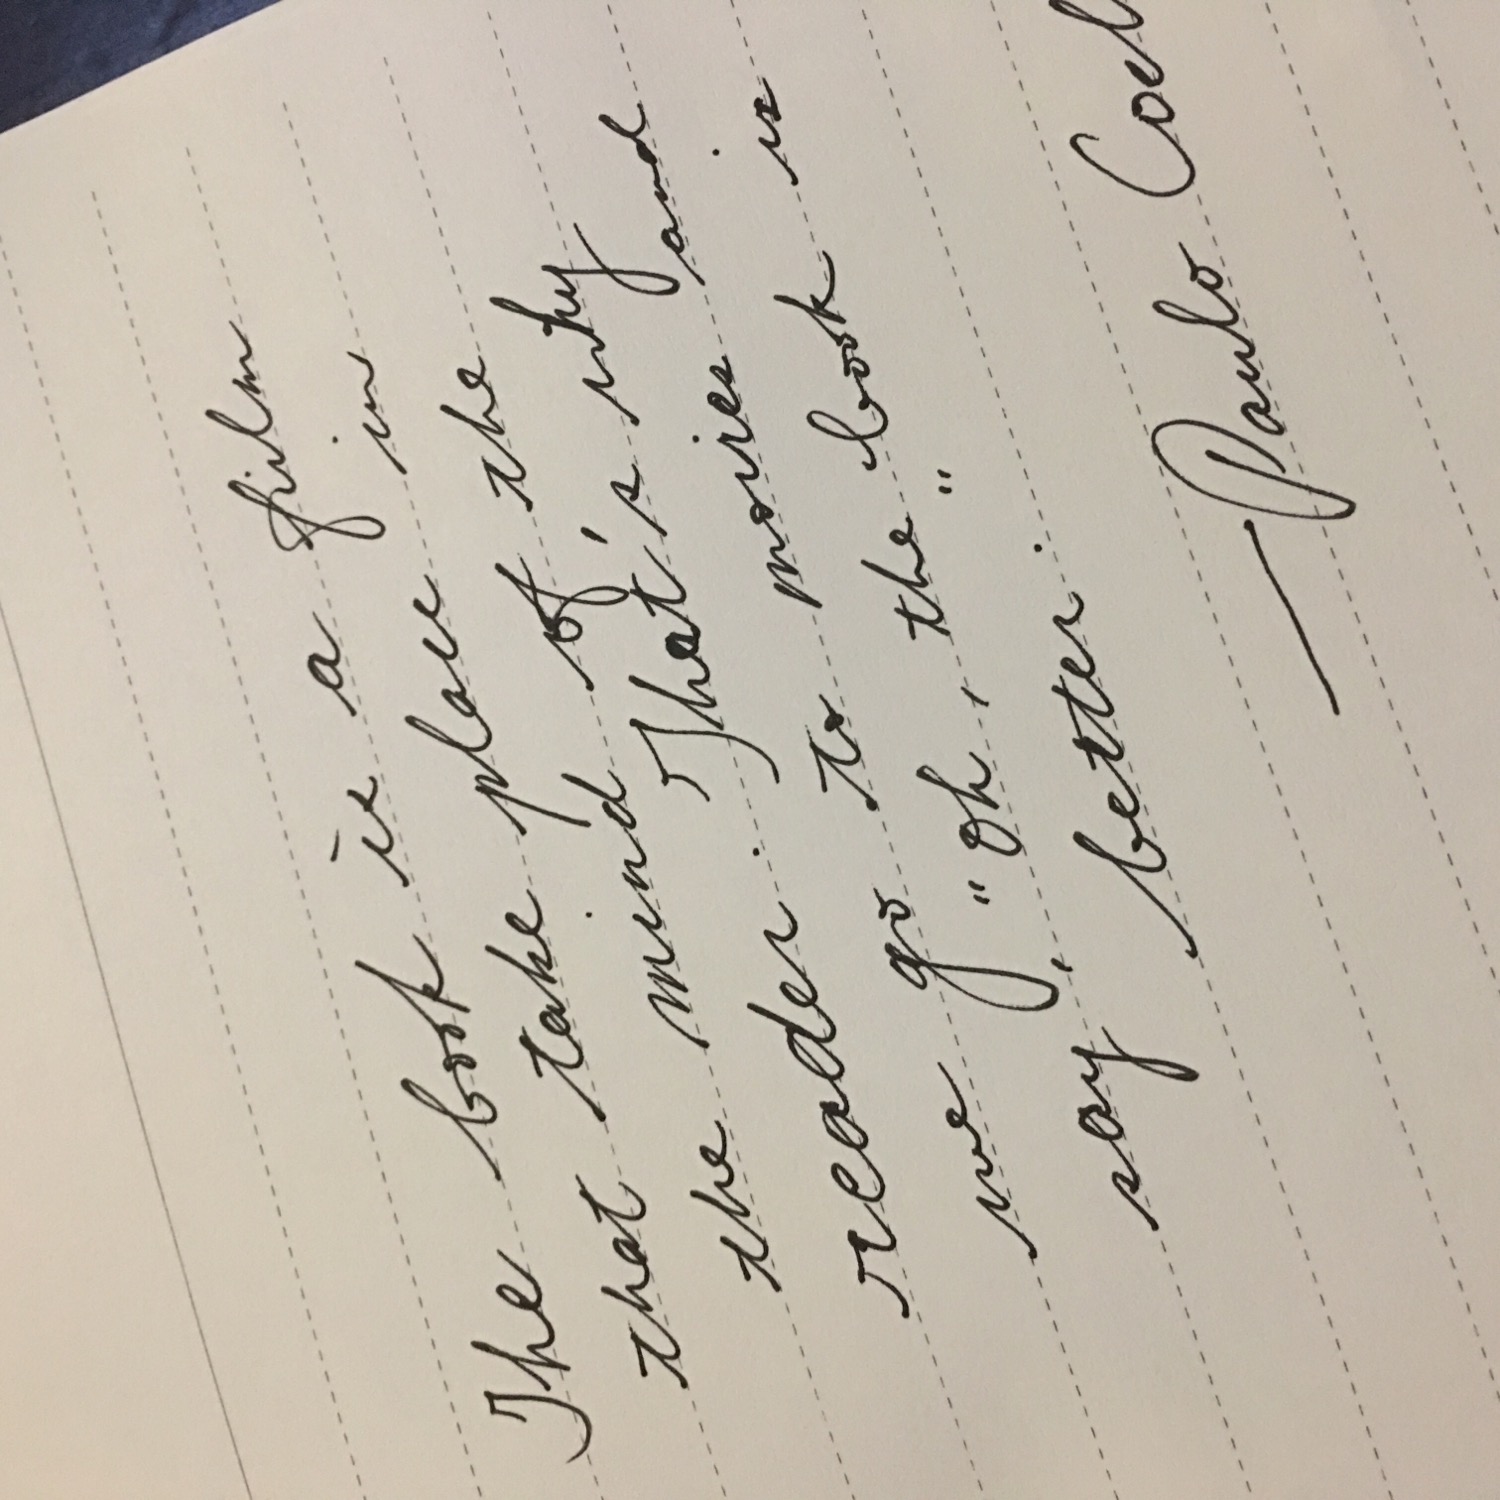 The book is a film
that take place in
the mind of the
reader. That's why
we go to movies and
say, "oh, the book is
better."
— Paulo Coel